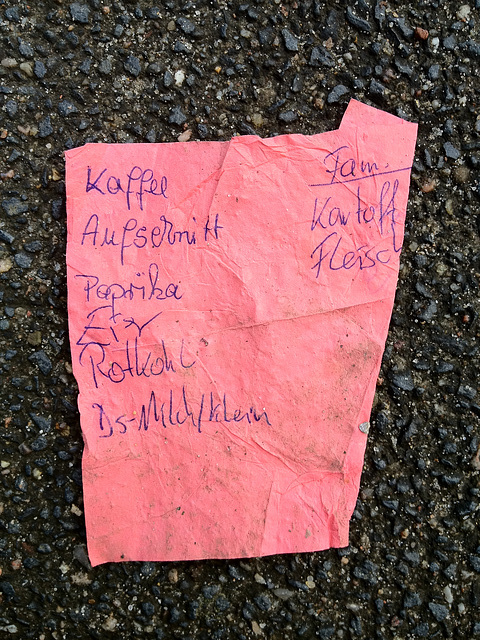 Kaffee
Aufschnitt
Paprika
Eier
Rotkohl
Ds-Milch/klein
Fam.
Kartoff
Fleisc